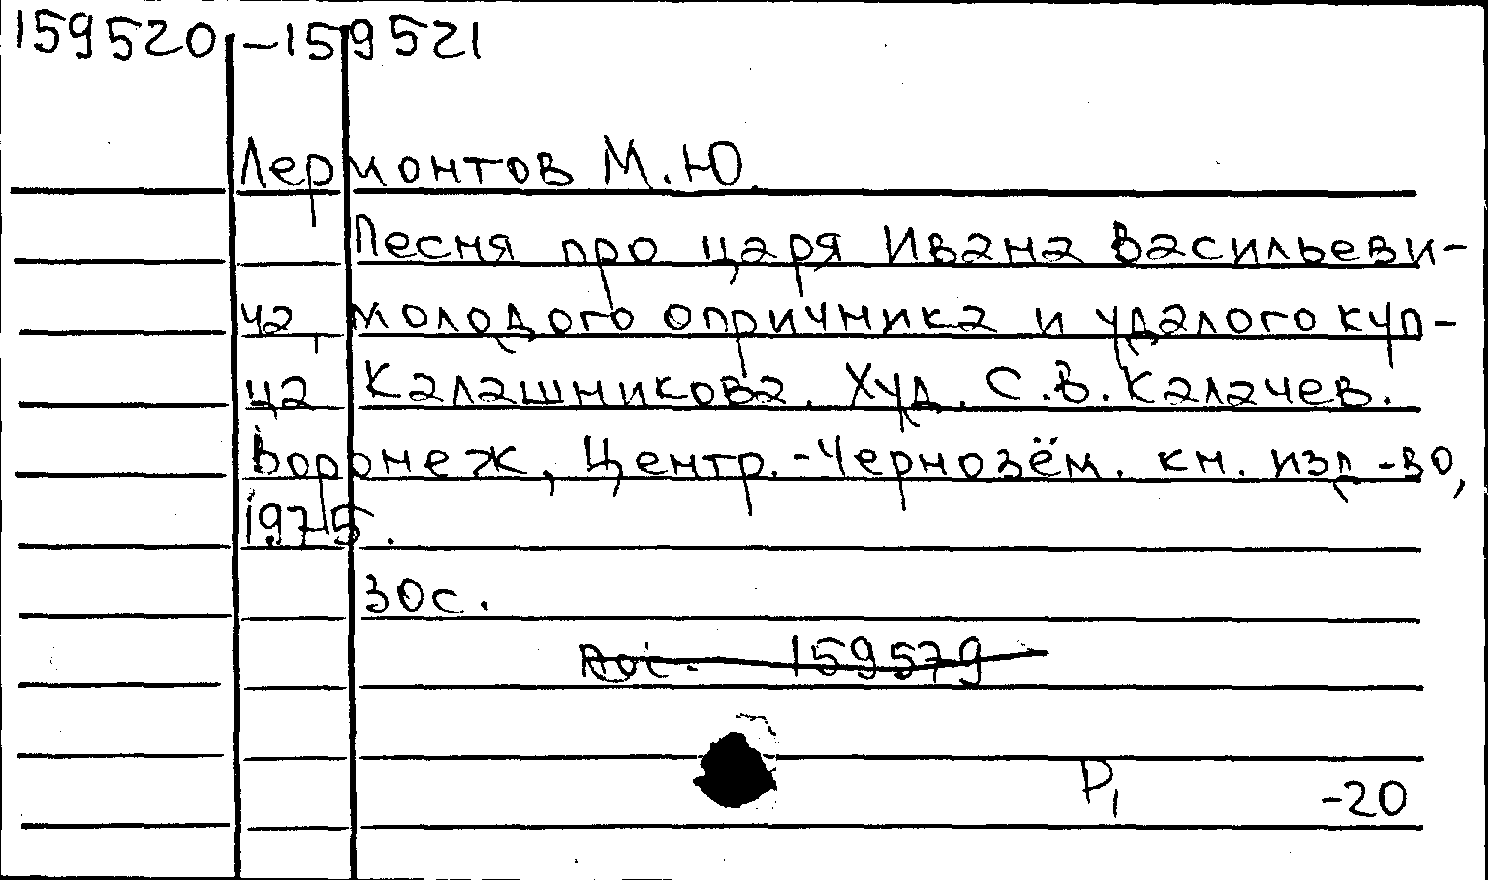 159520-159521
Лермонтов М.Ю.
Песня про царя Ивана Васильеви-
ча, молодого опричника и удалого куп-
ца Калашникова. Худ. С.В. Калачев.
Воронеж, Центр.-Чернозём. кн. изд-во,
1975.
30с.
159579
Р1 -20